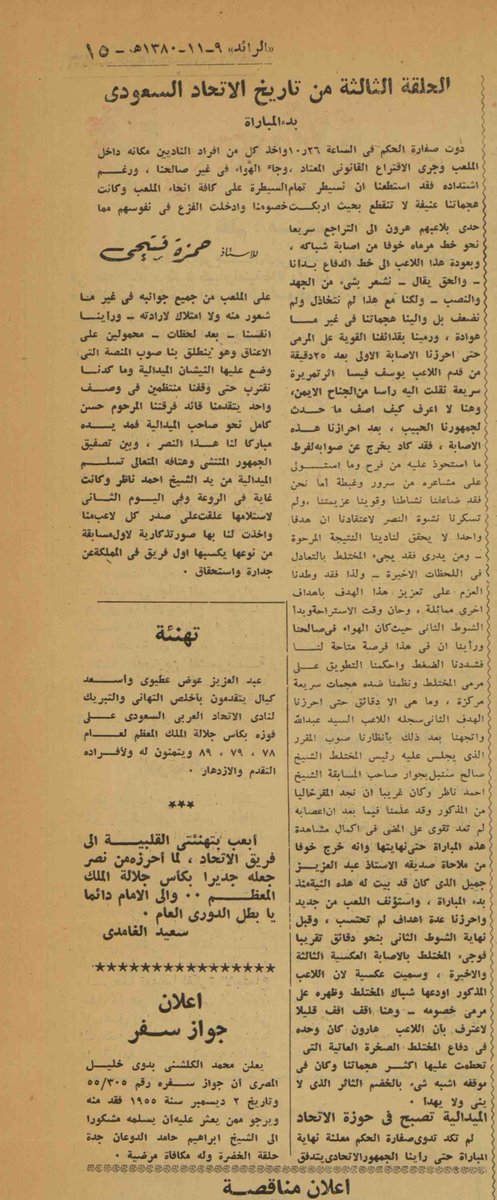 «الرائد» ٩-١١-١٣٨٠هـ - ١٥
الحلقة الثالثة من تاريخ الاتحاد السعودى
بدء المباراة
دوت صفارة الحكم فى الساعة ٢٦ر١٠ واخذ كل من افراد الناديين مكانه داخل
الملعب وجرى الاقتراع القانونى المعتاد ، وجاء الهواء فى غير صالحنا ، ورغم
اشتداده فقد استطعنا ان نسيطر تمام السيطرة على كافة انحاء الملعب وكانت
هجماتنا عنيفة لا تنقطع بحيث اربكت خصومنا وادخلت الفزع فى نفوسهم مما
حدى بلاعبهم هرون الى التراجع سريعا
نحو خط مرماه خوفا من اصابة شباكه ،
وبعودة هذا اللاعب الى خط الدفاع بدأنا
ـ والحق يقال ـ نشعر بشىء من الجهد
والنصب ـ ولكنا مع هذا لم نتخاذل ولم
نضعف بل والينا هجماتنا فى غير ما
هوادة ، ورمينا بقذائفنا القوية على المرمى
حتى احرزنا الاصابة الاولى بعد ٢٥ دقيقة
من قدم اللاعب يوسف فيسا اثر تمريرة
سريعة نقلت اليه رأسا من الجناح الايمن،
وهنا لا اعرف كيف اصف ما حدث
لجمهورنا الحبيب ، بعد احرازنا هذه
الاصابة ، فقد كاد يخرج عن صوابه لفرط
ما استحوذ عليه من فرح وما استولى
على مشاعره من سرور وغبطة أما نحن
فقد ضاعفنا نشاطنا وقوينا عزيمتنا ،ولم
تسكرنا نشوة النصر لاعتقادنا ان هدفا
واحدا لا يحقق لنادينا النتيجة المرجوة
ـ ومن يدرى فقد يجىء المختلط بالتعادل
فى اللحظات الاخيرة ـ ولذا فقد وطدنا
العزم على تعزيز هذا الهدف باهداف
اخرى مماثلة ، وحان وقت الاستراحة وبدأ
الشوط الثانى حيث كان الهواء فى صالحنا
ورأينا ان فى هذا فرصة متاحة لنا
فشددنا الضغط واحكمنا التطويق على
مرمى المختلط ونظمنا ضده هجمات سريعة
مركزة ، وما هى الا دقائق حتى احرزنا
الهدف الثانى سجله اللاعب السيد عبدالله
واتجهنا بعد ذلك بأنظارنا صوب المقر
الذى يجلس عليه رئيس المختلط الشيخ
صالح سنبل بجوار صاحب المسابقة الشيخ
احمد ناظر وكان غريبا ان نجد المقر خاليا
من المذكور وقد علمنا فيما بعد ان اعصابه
لم تعد تقوى على المضى فى اكمال مشاهدة
هذه المباراة حتى نهايتها وانه خرج خوفا
من ملاحاة صديقه الاستاذ عبد العزيز
جميل الذى كان قد بيت له هذه النية منذ
بدء المباراة ، واستؤنف اللعب من جديد
واحرزنا عدة اهداف لم تحتسب ، وقبل
نهاية الشوط الثانى بنحو دقائق تقريبا
فوجىء المختلط بالاصابة العكسية الثالثة
والاخيرة ، وسميت عكسية لان اللاعب
المذكور اودعها شباك المختلط وظهره على
مرمى خصومه ـ وهنا اقف اقف قليلا
لاعترف بان اللاعب هارون كان وحده
فى دفاع المختلط الصخرة العاتية التى
تحطمت عليها اكثر هجماتنا وكان فى
موقفه اشبه شىء بالخضم الثائر الذى لا
ينى ولا يهدأ .
الميدالية تصبح فى حوزة الاتحاد
لم تكد تدوى صفارة الحكم معلنة نهاية
المباراة حتى رأينا الجمهور الاتحادى يتدفق
للاستاذ حمزة فتيحى
على الملعب من جميع جوانبه فى غير ما
شعور منه ولا امتلاك لارادته ـ ورأينا
انفسنا ـ بعد لحظات ـ محمولين على
الاعناق وهو ينطلق بنا صوب المنصة التى
وضع عليها النيشان الميدالية وما كدنا
نقترب حتى وقفنا منتظمين فى وصف
واحد يتقدمنا قائد فرقتنا المرحوم حسن
كامل نحو صاحب الميدالية فمد يده
مباركا لنا هذا النصر ، وبين تصفيق
الجمهور المنتشى وهتافه المتعالى تسلم
الميدالية من يد الشيخ احمد ناظر وكانت
غاية فى الروعة وفى اليوم الثانى
لاستلامها علقت على صدر كل لاعب منا
واخذت لنا بها صور تذكارية لاول مسابقة
من نوعها يكسبها اول فريق فى المملكة عن
جدارة واستحقاق .
تهنئة
عبد العزيز عوض عطيوى واسعد
كيال يتقدمون بأخلص التهانى والتبريك
لنادى الاتحاد العربى السعودى على
فوزه بكأس جلالة الملك المعظم لعام
٧٨ ، ٧٩ ، ٨٩ ويتمنون له ولأفراده
التقدم والازدهار .
***
أبعب بتهنئتى القلبية الى
فريق الاتحاد ، لما أحرزه من نصر
جعله جديرا بكأس جلالة الملك
المعظم .. والى الامام دائما
يا بطل الدورى العام .
سعيد الغامدى
****************
اعلان
جواز سفر
يعلن محمد الكلشنى بدوى خليل
المصرى ان جواز سفره رقم ٥٥/٣٠٥
وتاريخ ٢ ديسمبر سنة ١٩٥٥ فقد منه
ويرجو ممن يعثر عليه ان يسلمه مشكورا
الى الشيخ ابراهيم حامد الدوعان جدة
حلقة الخضرة وله مكافأة مرضية .
اعلان مناقصة